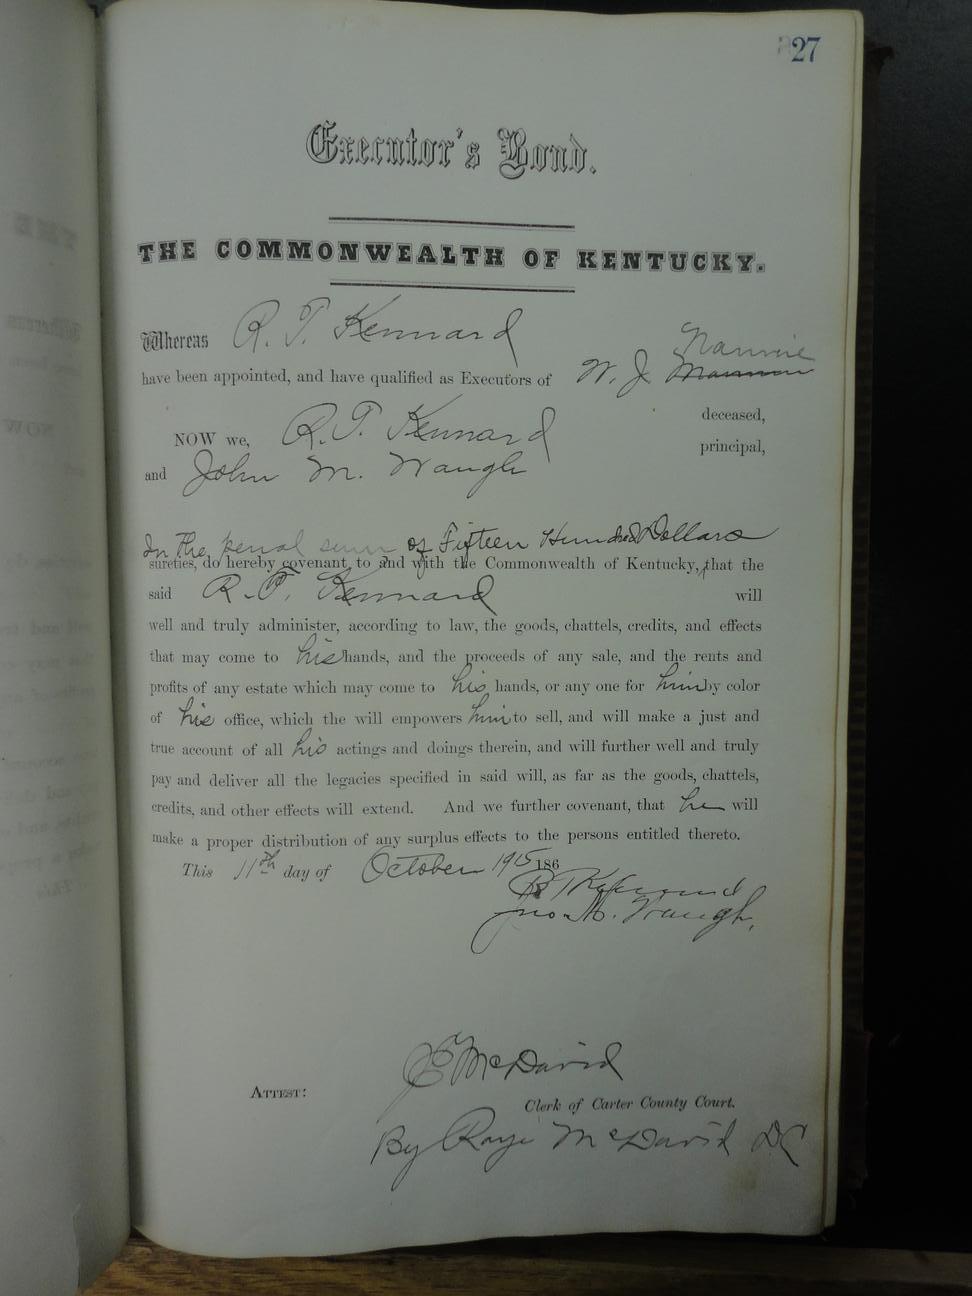 27
Executor's Bond.
THE COMMONWEALTH OF KENTUCKY.
Whereas R. T. Kennard
Nannie
have been appointed, and have qualified as Executors of W. J.
deceased,
NOW we, R. T. Kennard principal,
and John M. Waugh
In the penal sum of Fifteen Hundred Dollars
sureties, do hereby covenant to and with the Commonwealth of Kentucky, that the
said R. T. Kennard will
well and truly administer, according to law, the goods, chattels, credits, and effects
that may come to his hands, and the proceeds of any sale, and the rents and
profits of any estate which may come to his hands, or any one for him by color
of his office, which the will empowers him to sell, and will make a just and
true account of all his actings and doings therein, and will further well and truly
pay and deliver all the legacies specified in said will, as far as the goods, chattels,
credits, and other effects will extend. And we further covenant, that he will
make a proper distribution of any surplus effects to the persons entitled thereto.
This 11th day of October 1915 186
R T Kennard
Jno. M. Waugh,
J E McDavid
ATTEST:
Clerk of Carter County Court.
By Raye McDavid DC